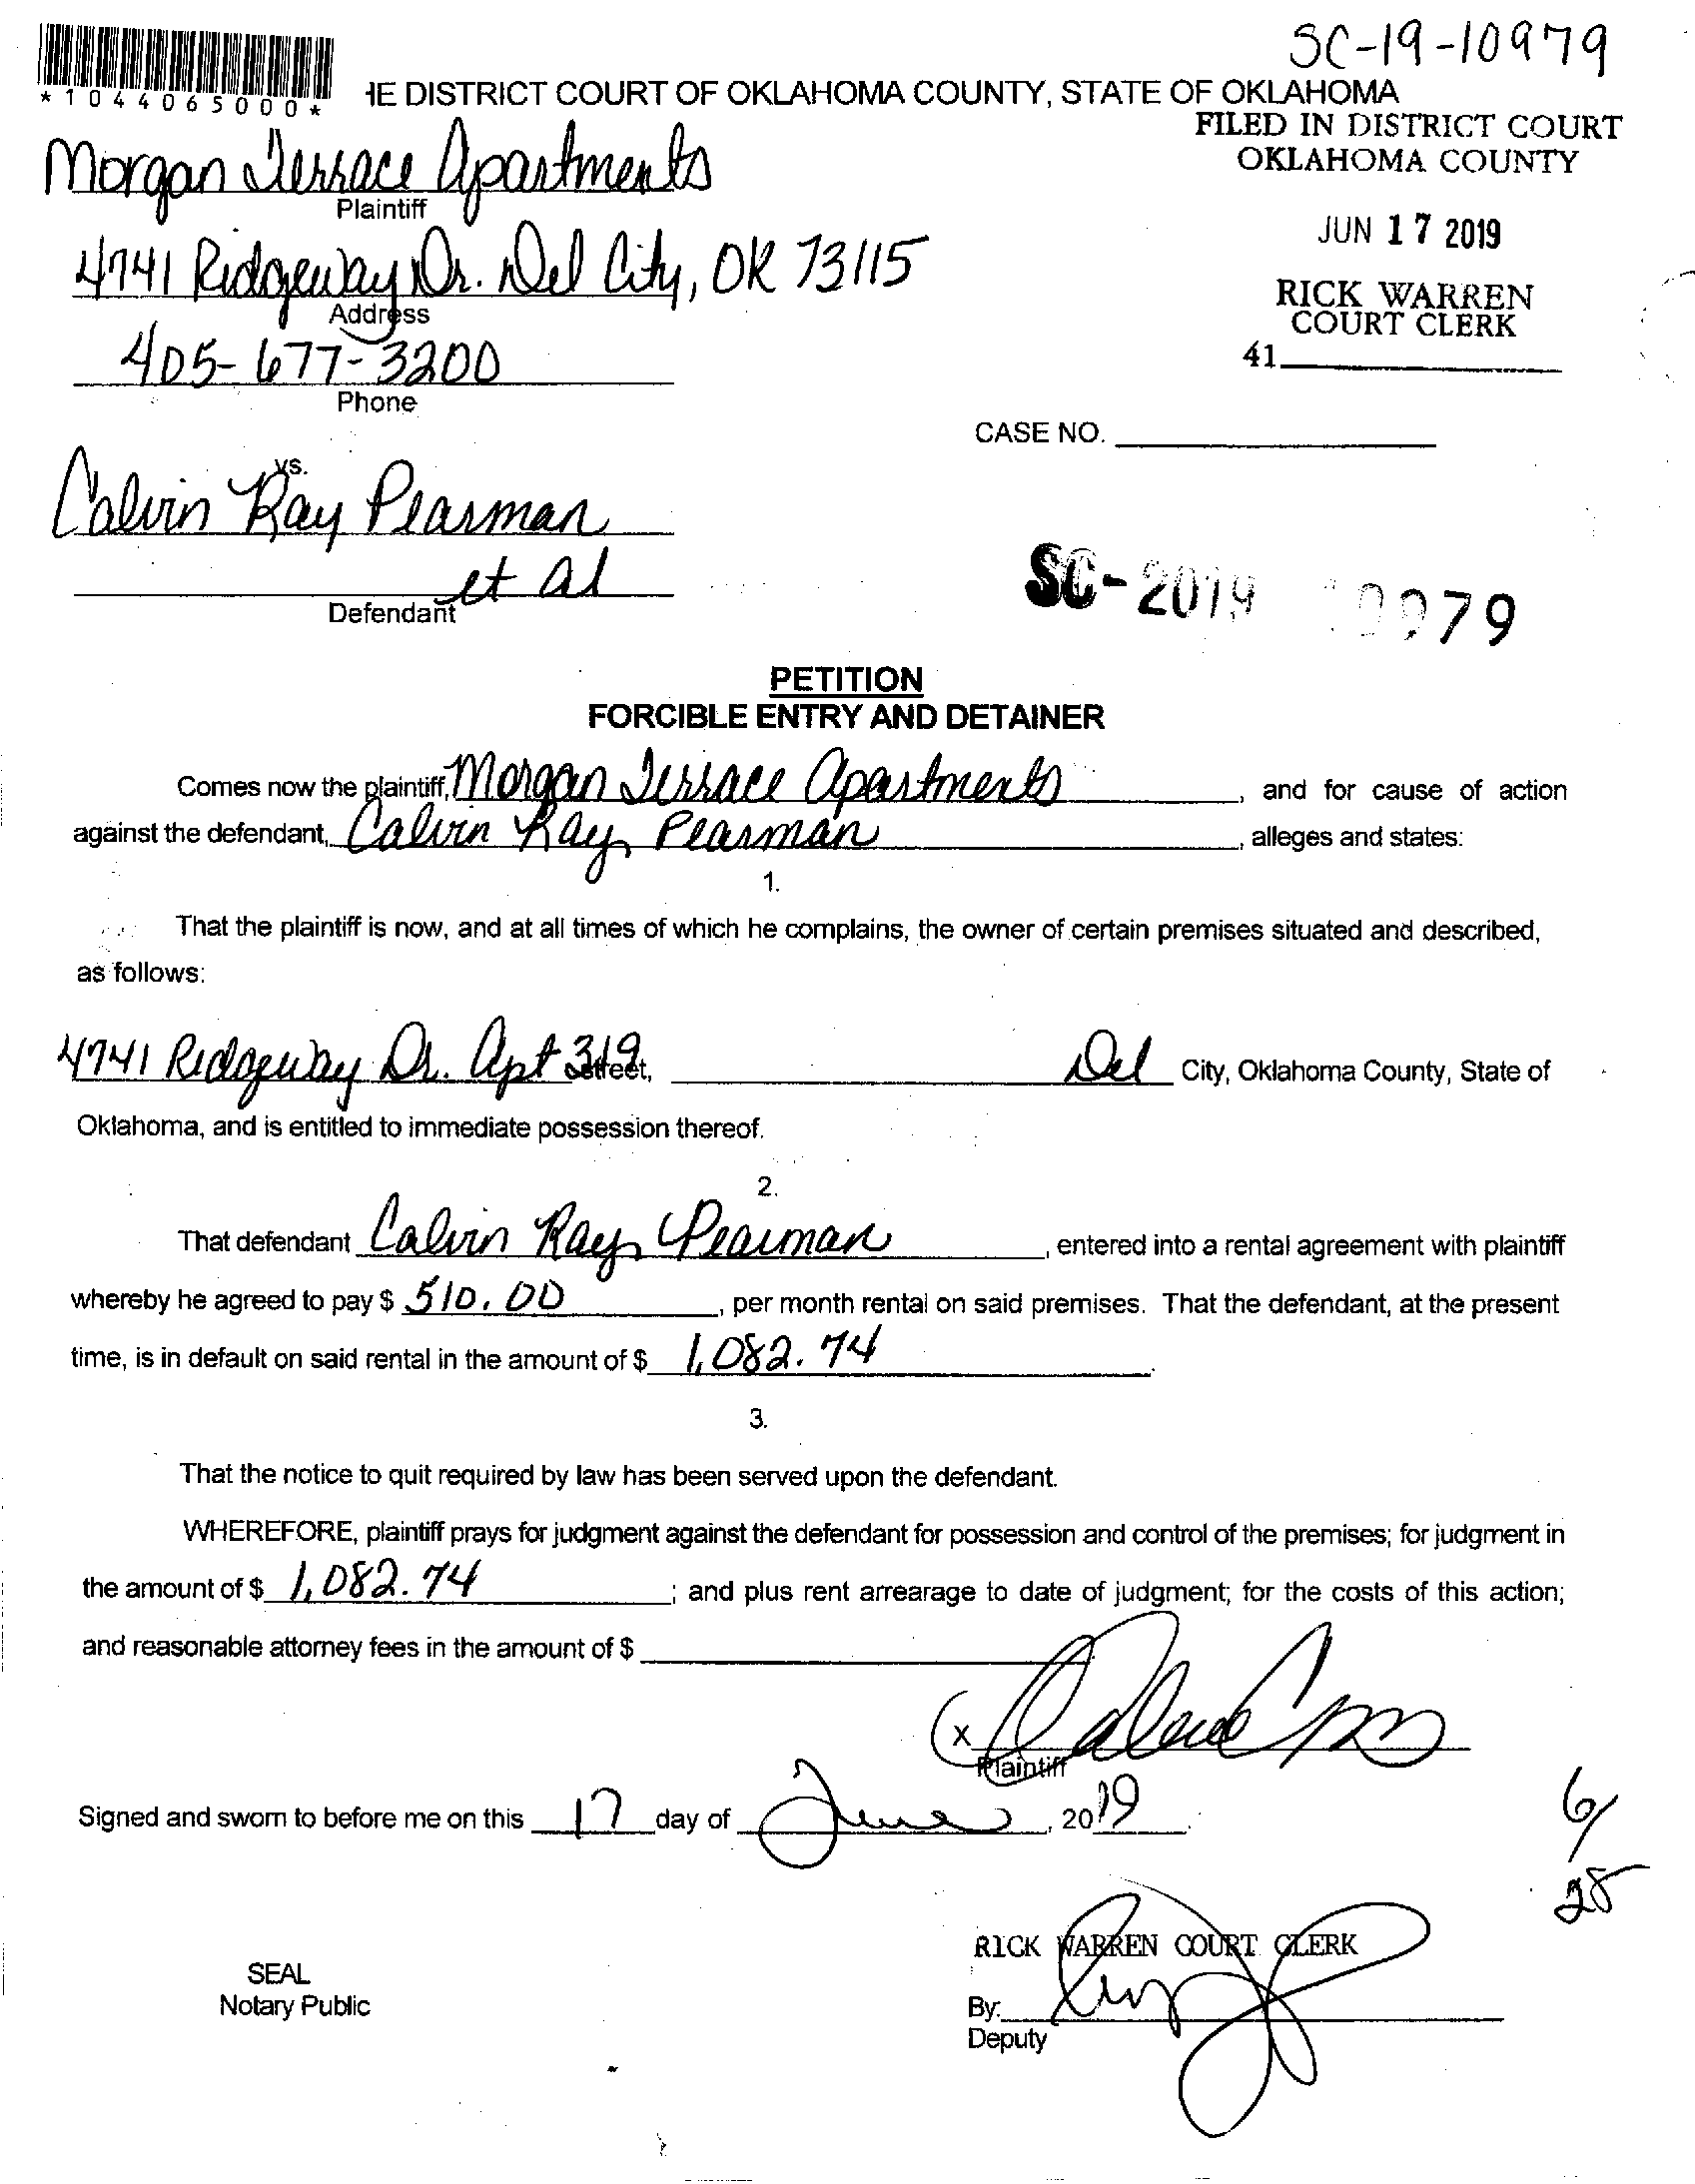 SC-19-10979
*1044065000*
HE DISTRICT COURT OF OKLAHOMA COUNTY, STATE OF OKLAHOMA
FILED IN DISTRICT COURT
OKLAHOMA COUNTY
Morgan Terrace Apartments
Plaintiff
JUN 17 2019
4741 Ridgeway Dr. Del City, OK 73115
Address
RICK WARREN
COURT CLERK
405-677-3200
41
Phone
CASE NO.
vs.
Calvin Ray Pearman
et al
Defendant
SC-2019 979
PETITION
FORCIBLE ENTRY AND DETAINER
Comes now the plaintiff, Morgan Terrace Apartments, and for cause of action
against the defendant, Calvin Ray Pearman, alleges and states:
1.
That the plaintiff is now, and at all times of which he complains, the owner of certain premises situated and described,
as follows:
4741 Ridgeway Dr. Apt 319 Street, Del City, Oklahoma County, State of
Oklahoma, and is entitled to immediate possession thereof.
2.
That defendant Calvin Ray Pearman, entered into a rental agreement with plaintiff
whereby he agreed to pay $ 510.00, per month rental on said premises. That the defendant, at the present
time, is in default on said rental in the amount of $ 1,082.74.
3.
That the notice to quit required by law has been served upon the defendant.
WHEREFORE, plaintiff prays for judgment against the defendant for possession and control of the premises; for judgment in
the amount of $ 1,082.74; and plus rent arrearage to date of judgment; for the costs of this action;
and reasonable attorney fees in the amount of $
x
Plaintiff
Signed and sworn to before me on this 17 day of June, 2019.
6/
28
RICK WARREN COURT CLERK
SEAL
Notary Public
By:
Deputy